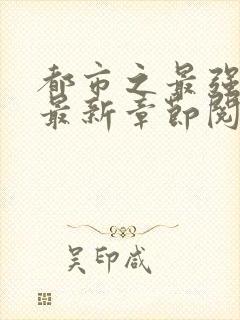 都市之最强
最新章节阅
吴印咸